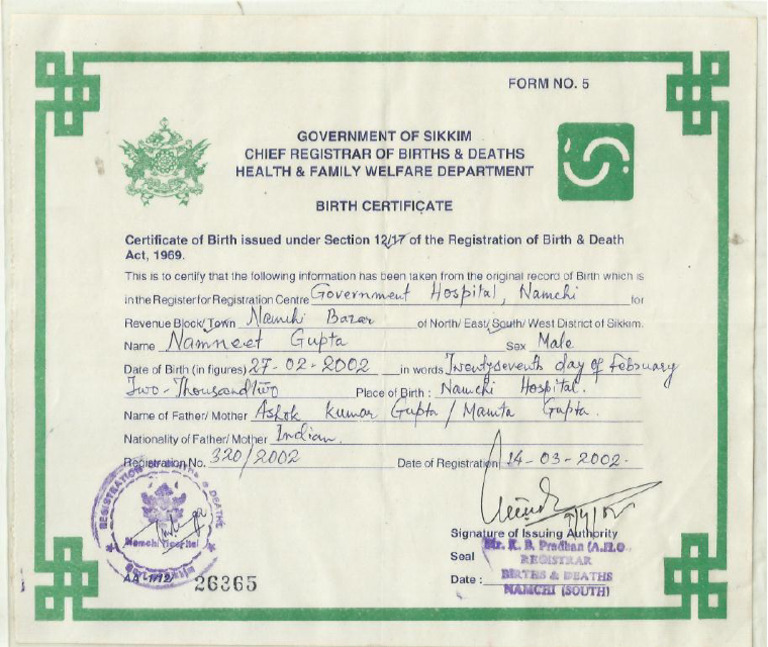 FORM NO. 5
GOVERNMENT OF SIKKIM
CHIEF REGISTRAR OF BIRTHS & DEATHS
HEALTH & FAMILY WELFARE DEPARTMENT
BIRTH CERTIFICATE
Certificate of Birth issued under Section 12/17 of the Registration of Birth & Death
Act, 1969.
This is to certify that the following information has been taken from the original record of Birth which is
in the Register for Registration Centre Government Hospital, Namchi for
Revenue Block/Town Namchi Bazar of North/ East/ South/ West District of Sikkim.
Name Namneet Gupta Sex Male
Date of Birth (in figures) 27-02-2002 in words Twentyseventh day of February
Two-Thousandtwo Place of Birth : Namchi Hospital.
Name of Father/ Mother Ashok Kumar Gupta / Mamta Gupta.
Nationality of Father/ Mother Indian.
Registration No. 320/2002 Date of Registration 14-03-2002.
REGISTRATION BIRTHS & DEATHS
Namchi Hospital
Signature of Issuing Authority
Seal Mr. K. B. Pradhan (A.H.O
REGISTRAR
Date : BIRTHS & DEATHS
NAMCHI (SOUTH)
26365